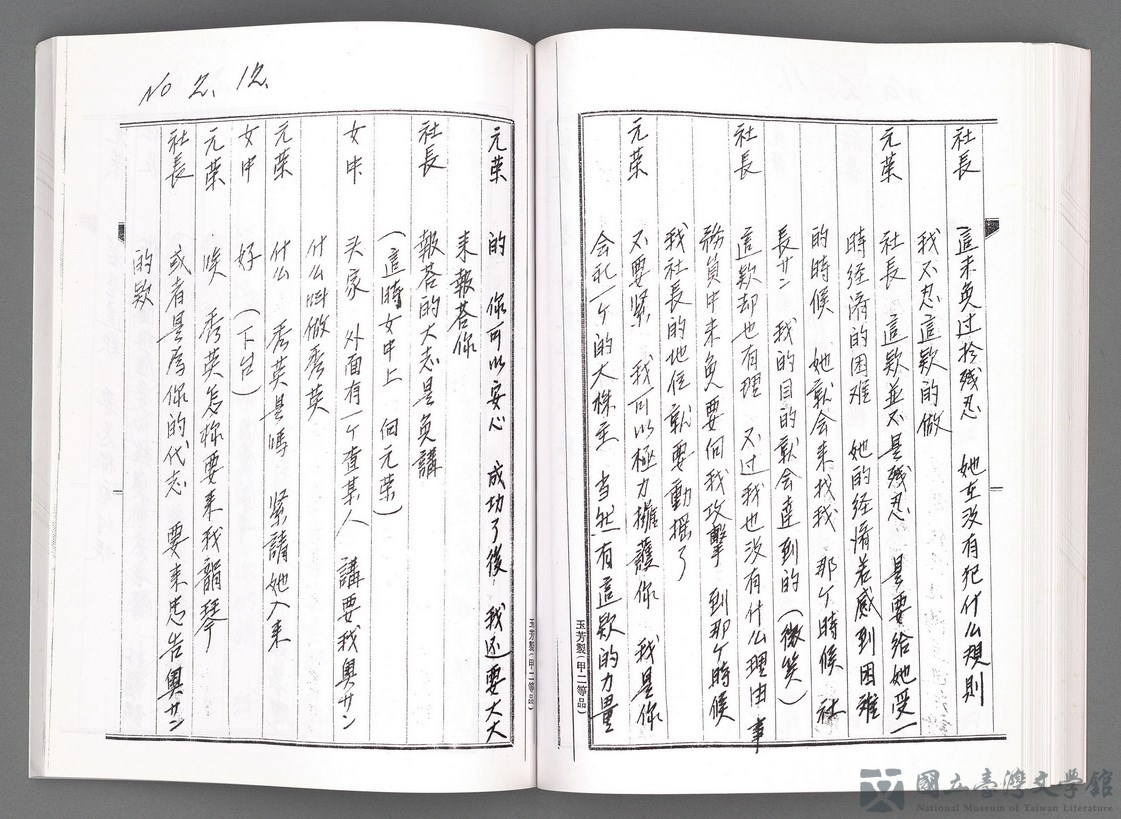 社長 這未免过於残忍 她在没有犯什么規則
我不忍這款的做
元葉 社長 這款並不是残忍 是要給她受一
時経済的困难 她的経済若感到困难
的時候 她就会来找我 那个時候 社
長サン 我的目的就会達到的(微笑)
社長 這款却也有理 不过我也没有什么理由 事
務員中未免要向我攻擊 到那个時候
我社長的地位就要動揺了
元葉 不要緊 我可以極力擁護你 我是你
会社一个的大株主 当然有這款的力量
玉芳製(甲二等品)
No 2. 12.
元葉 的 你可以安心 成功了後 我还要大大
来報荅你
社長 報荅的大志是免講
(這時女中上 向元葉)
女中 头家 外面有一个查某人 講要找奥サン
什么叫做秀英
元葉 什么 秀英是嗎 緊請她入来
女中 好 (下台)
元葉 唉 秀英怎樣要来找韻琴
社長 或者是為你的代志 要来忠告奥サン
的款
玉芳製(甲二等品)
國立臺灣文學館
National Museum of Taiwan Literature